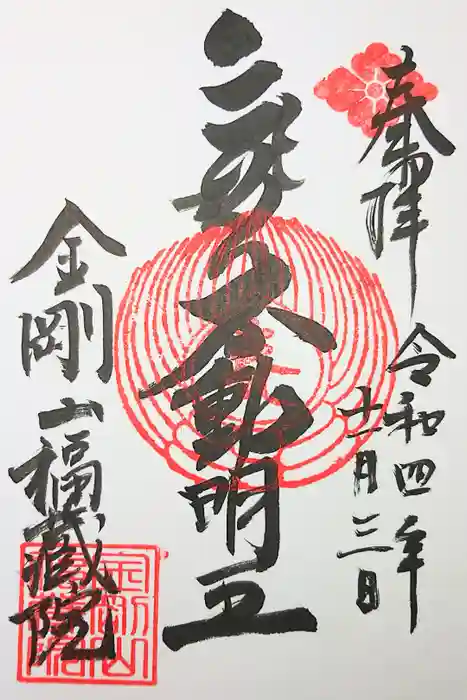 奉拝
令和四年
十二月三日
不動明王
金剛山福蔵院
金剛山